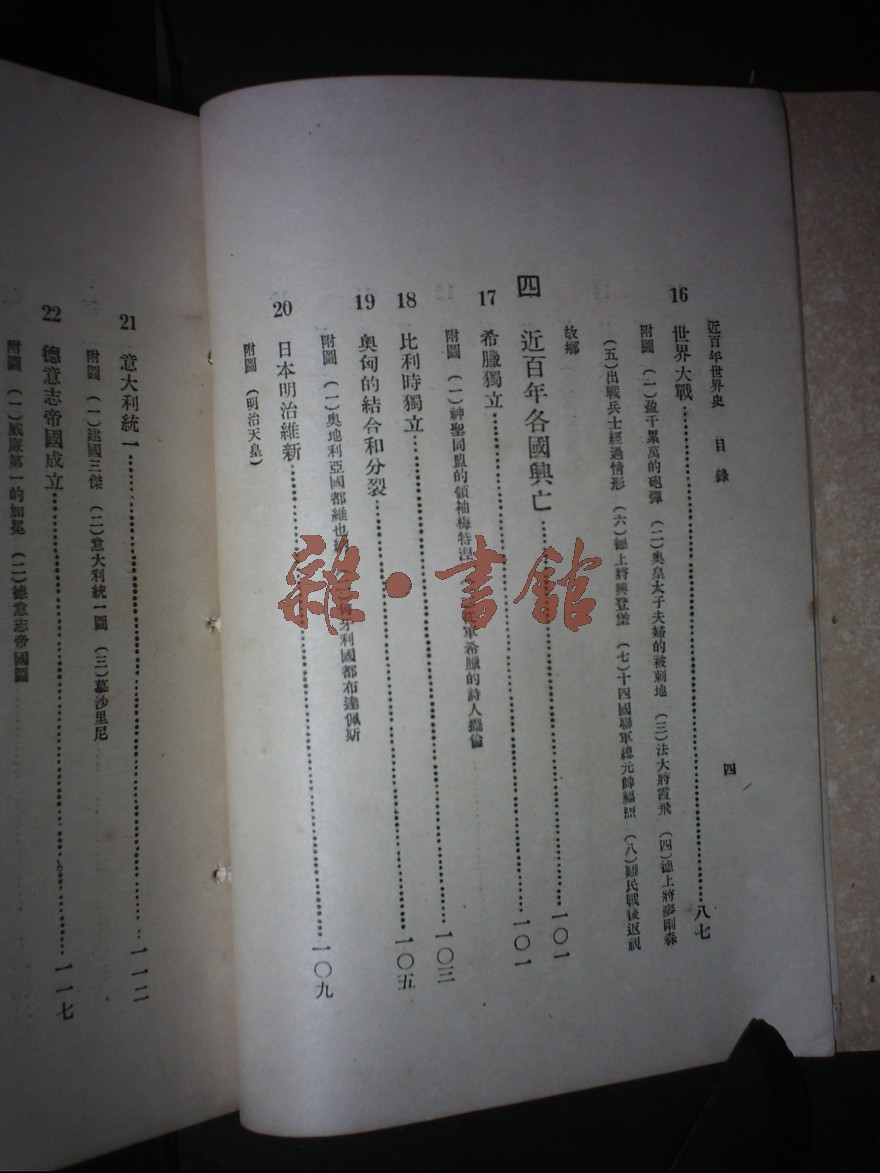 近百年世界史　目錄
四
16 世界大戰……八七
附圖 (一)盈千累萬的砲彈 (二)奧皇太子夫婦的被刺地 (三)法大將霞飛 (四)德上將麥剛森
(五)出戰兵士經過情形 (六)德上將興登堡 (七)十四國聯軍總元帥福煦 (八)難民戰後返視
故鄉
四 近百年各國興亡……一〇一
17 希臘獨立……一〇一
附圖 (一)神聖同盟的領袖梅特涅 軍希臘的詩人擺倫
18 比利時獨立……一〇三
19 奧匈的結合和分裂……一〇五
附圖 (一)奧地利亞國都維也納 牙利國都布達佩斯
20 日本明治維新……一〇九
附圖 (明治天皇)
21 意大利統一……一一二
附圖 (一)建國三傑 (二)意大利統一圖 (三)慕沙里尼
22 德意志帝國成立……一一七
附圖 (一)威廉第一的加冕 (二)德意志帝國圖
雜·書館